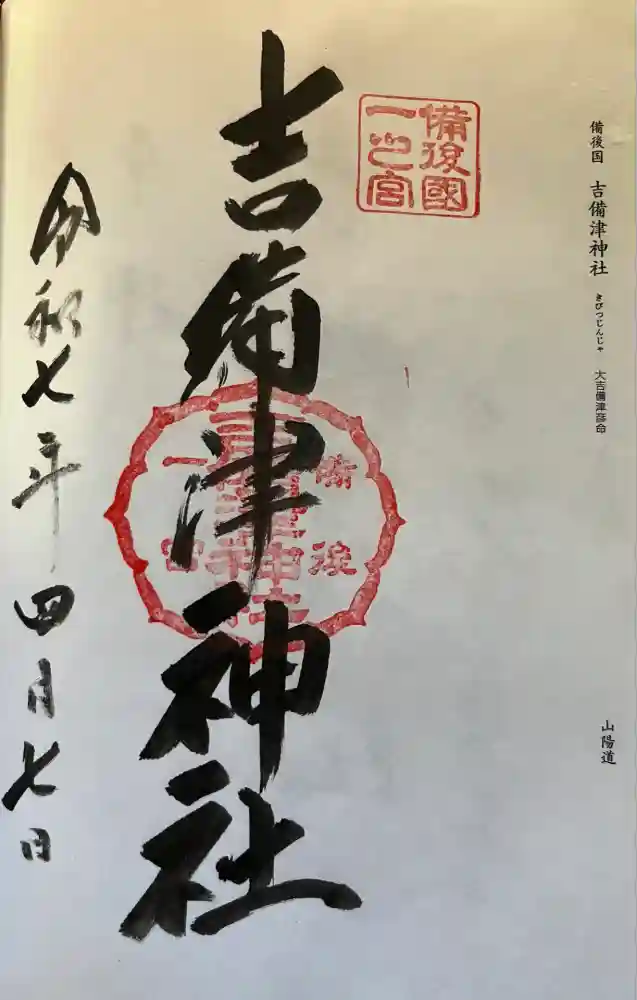 備後国 吉備津神社 きびつじんじゃ 大吉備津彦命
山陽道
備後國
一之宮
吉備津神社
備後
吉備津神社
一宮
令和七年四月七日